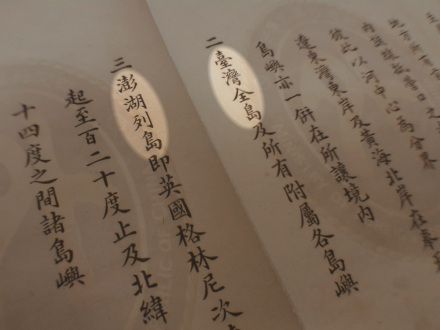 此以河中心為分界
遼東灣東岸及黃海北岸在奉
島嶼亦一併在所讓境內
二臺灣全島及所有附屬各島嶼
三澎湖列島即英國格林尼次
起至百二十度止及北緯
十四度之間諸島嶼